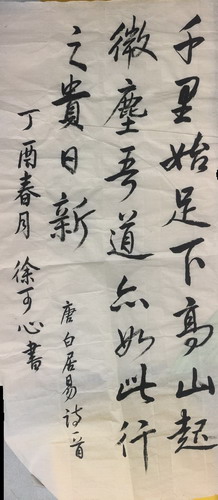 千里始足下高山起
微塵吾道亦如此行
之貴日新
唐白居易诗一首
丁酉春月 徐可心書